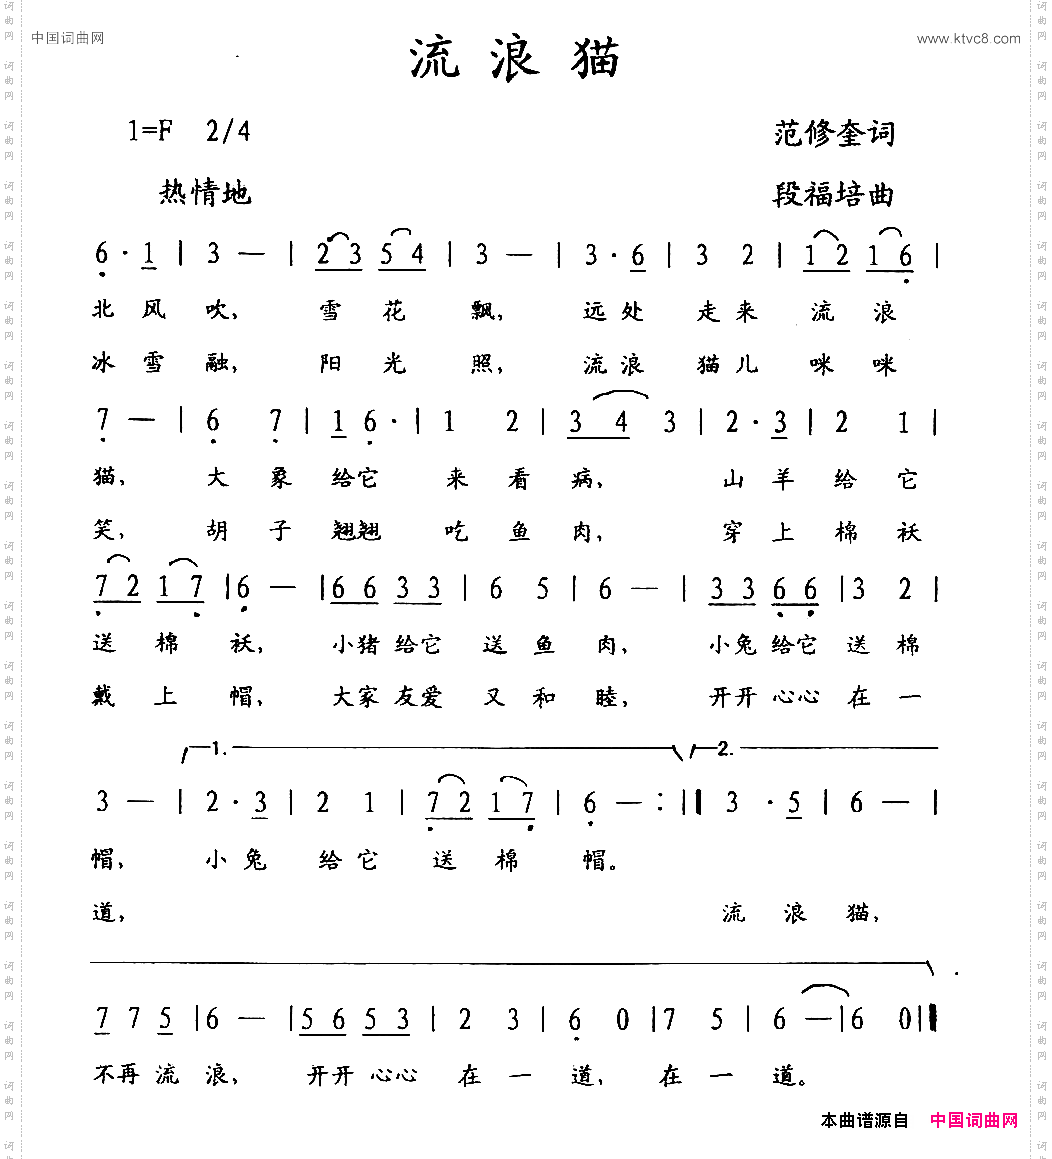 中国词曲网
www.ktvc8.com
流浪猫
1=F 2/4
范修奎词
热情地
段福培曲
6 · 1 | 3 — | 2 3 5 4 | 3 — | 3 · 6 | 3 2 | 1 2 1 6 |
北风吹, 雪花飘, 远处走来流浪
冰雪融, 阳光照, 流浪猫儿咪咪
7 — | 6 7 | 1 6 · | 1 2 | 3 4 3 | 2 · 3 | 2 1 |
猫, 大象给它来看病, 山羊给它
笑, 胡子翘翘吃鱼肉, 穿上棉袄
7 2 1 7 | 6 — | 6 6 3 3 | 6 5 | 6 — | 3 3 6 6 | 3 2 |
送棉袄, 小猪给它送鱼肉, 小兔给它送棉
戴上帽, 大家友爱又和睦, 开开心心在一
1. 2.
3 — | 2 · 3 | 2 1 | 7 2 1 7 | 6 — :‖ 3 · 5 | 6 — |
帽, 小兔给它送棉帽。
道, 流浪猫,
7 7 5 | 6 — | 5 6 5 3 | 2 3 | 6 0 | 7 5 | 6 — | 6 0 ‖
不再流浪, 开开心心在一道, 在一道。
本曲谱源自 中国词曲网